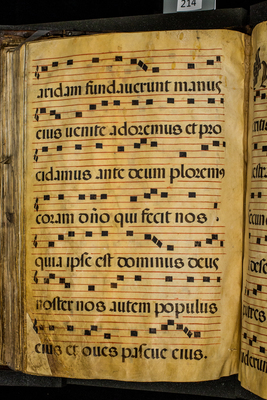 214
aridam fundaverunt manus
eius venite adoremus et pro
cidamus ante deum plorem9
coram dño qui fecit nos .
quia ipse est dominus deus
noster nos autem populus
eius et oves pascue eius.